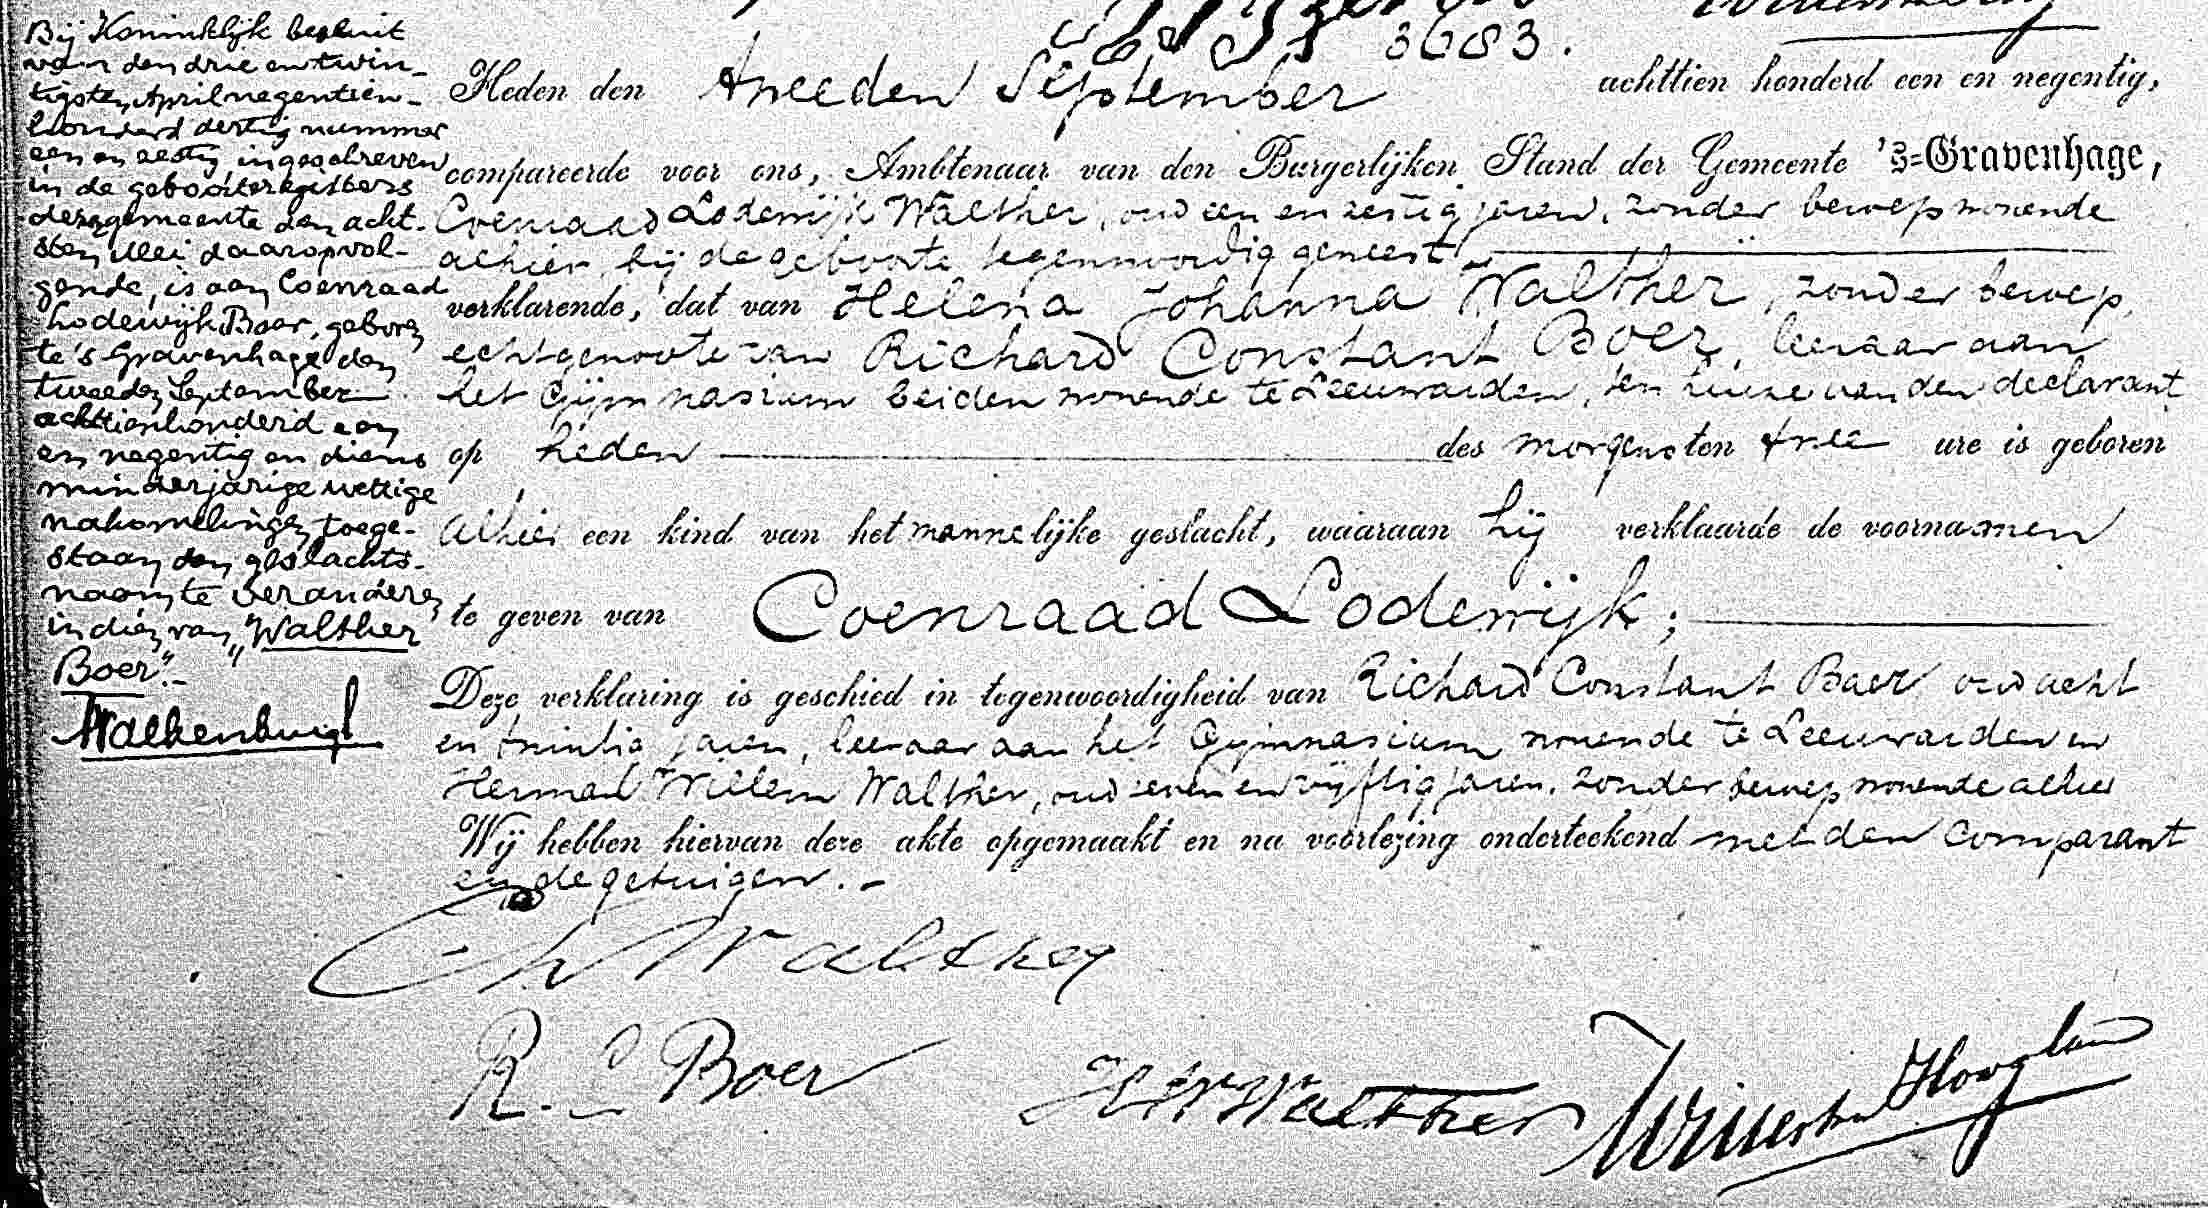 3683.
Heden den tweeden September achttien honderd een en negentig,
compareerde voor ons, Ambtenaar van den Burgerlijken Stand der Gemeente 's-Gravenhage,
Coenraad Lodewijk Walther, oud een en zestig jaren, zonder beroep wonende
alhier, bij de geboorte tegenwoordig geweest
verklarende, dat van Helena Johanna Walther, zonder beroep,
echtgenoote van Richard Constant Boer, leeraar aan
het Gymnasium beiden wonende te Leeuwarden, ten huize van den declarant
op heden des morgens ten twee ure is geboren
alhier een kind van het mannelijke geslacht, waaraan hij verklaarde de voornamen
te geven van Coenraad Lodewijk;
Deze verklaring is geschied in tegenwoordigheid van Richard Constant Boer oud acht
en twintig jaren, leeraar aan het Gymnasium wonende te Leeuwarden en
Herman Willem Walther, oud zeven en vijftig jaren, zonder beroep wonende alhier
Wij hebben hiervan deze akte opgemaakt en na voorlezing onderteekend met den comparant
en de getuigen.-
Walther
R. C Boer
HWWalther
Hoogland
Bij Koninklijk besluit
van den drie en twin-
tigsten April negentien-
honderd dertig nummer
een en zestig ingeschreven
in de geboorteregisters
dezer gemeente den acht-
sten Mei daaropvol-
gende, is aan Coenraad
Lodewijk Boer, geboren
te 's Gravenhage den
tweeden September
achttienhonderd een
en negentig en diens
minderjarige wettige
nakomelingen toege-
staan den geslachts-
naam te veranderen
in dien van "Walther
Boer".-
Valkenburg